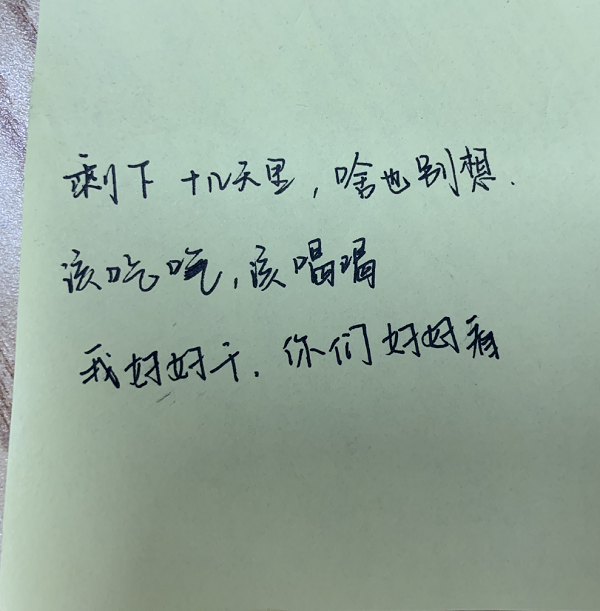 剩下十几天里，啥也别想.
该吃吃，该唱喝
我好好干．你们好好看